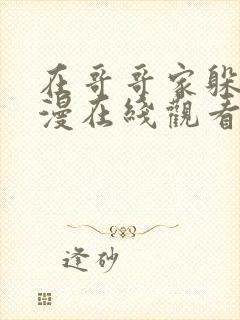 在哥哥家躲
漫在綫觀看
逢砂